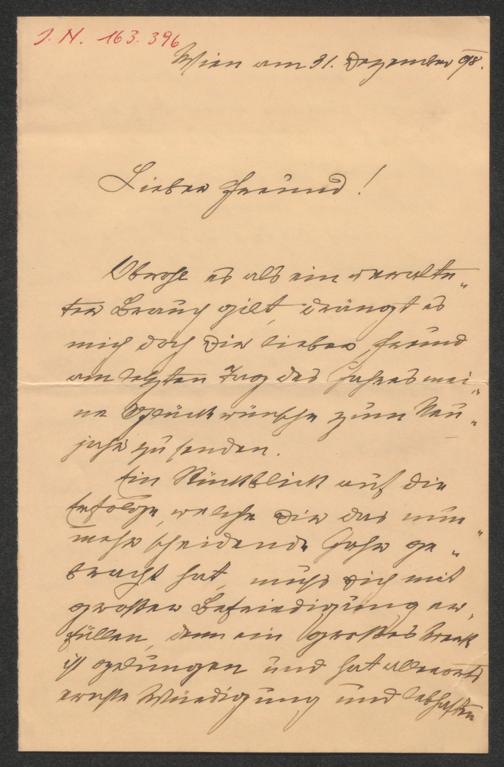 J. N. 163.396
Wien am 31. Dezember 98.
Lieber Freund!
Obwohl es als ein veralte„
ter Brauch gilt, drängt es
mich doch Dir lieber Freund
am letzten Tag des Jahres mei„
ne Glückwünsche zum Neu„
jahr zu senden.
Ein Rückblick auf die
Erfolge, welche Dir das nun„
mehr scheidende Jahr ge„
bracht hat, muß Dich mit
großer Befriedigung er„
füllen, denn ein großes Werk
ist gelungen und hat allerorts
ernste Würdigung und lebhaften